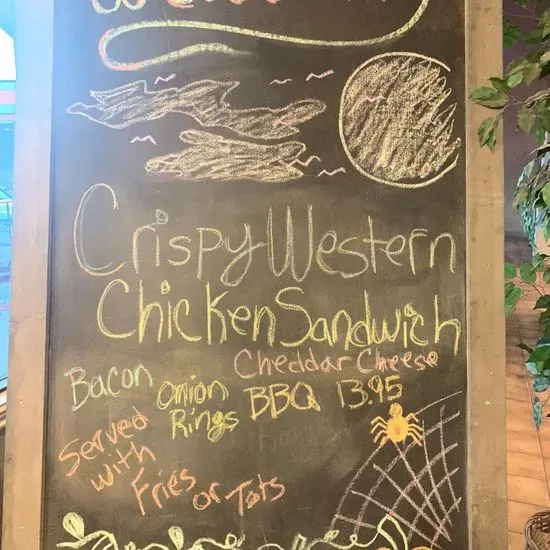 Crispy Western
Chicken Sandwich
Bacon Onion Rings Cheddar Cheese
BBQ 13.95
Served
with
Fries
or Tots